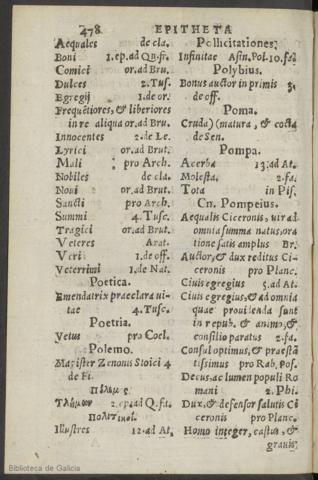 478 EPITHETA
Aequales de cla.
Boni 1. ep. ad Qu. fr.
Comici or. ad Bru.
Dulces 2. Tus.
Egregij 1. de or.
Frequẽtiores, & liberiores
in re aliqua or. ad Bru.
Innocentes 2. de Le.
Lyrici or. ad Brut.
Mali pro Arch.
Nobiles de cla.
Noui or. ad Brut.
Sancti pro Arch.
Summi 4. Tusc.
Tragici or. ad Brut.
Veteres Arat.
Veri 1. de off.
Veterrimi 1. de Nat.
Poetica.
Emendatrix praeclara ui-
tae 4. Tusc.
Poetria.
Vetus pro Coel.
Polemo.
Magister Zenonis Stoici 4
de Fi.
Τλήμων 2. ep. ad Q. fa.
πολιτικοί.
Illustres 12. ad At.
Pollicitationes.
Infinitae Asin. Pol. 10. fa.
Polybius.
Bonus auctor in primis 3.
de off.
Poma.
Cruda) (matura, & cocta
de Sen.
Pompa.
Acerba 13. ad At.
Molesta. 2. fa.
Tota in Pis.
Cn. Pompeius.
Aequalis Ciceronis, uir ad
omnia summa natus, ora
tione satis amplus Br.
Auctor, & dux reditus Ci-
ceronis pro Planc.
Ciuis egregius 5. ad At.
Ciuis egregius, & ad omnia
quae prouidenda sunt
in repub. & animo, &
consilio paratus 2. fa.
Consul optimus, & praestã
tissimus pro Rab. Pos.
Decus, ac lumen populi Ro
mani 2. Phi.
Dux, & defensor salutis Ci
ceronis pro Planc.
Homo integer, castus, &
grauis
Biblioteca de Galicia